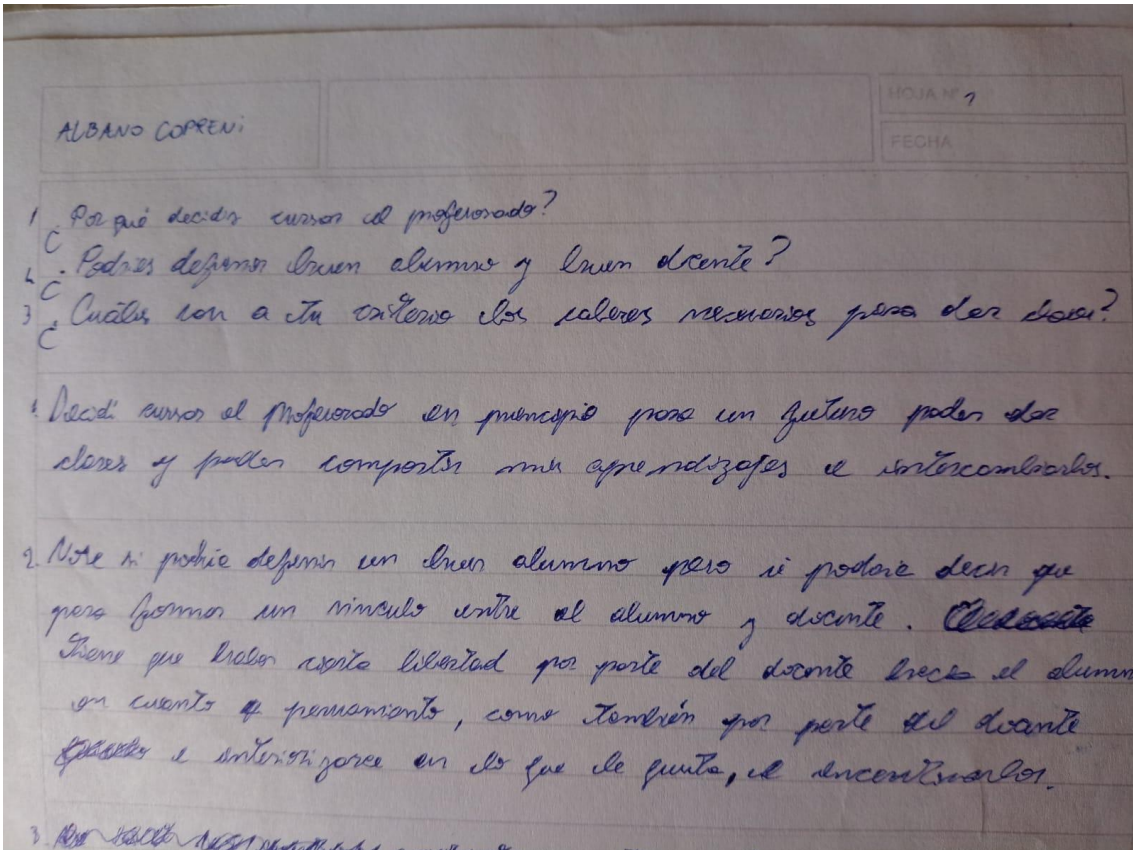 HOJA Nº 1
ALBANO COPRENI
FECHA
1 ¿Por qué decidis cursar el profesorado?
2 ¿Podrias definir buen alumno y buen docente?
3 ¿Cuáles son a tu criterio los saberes necesarios para dar clase?
1. Decidí cursar el profesorado en principio para un futuro poder dar
clases y poder compartir mis aprendizajes e intercambiarlos.
2. No se si podria definir un buen alumno pero si podria decir que
para formar un vinculo entre el alumno y docente.
Tiene que haber cierta libertad por parte del docente hacia el alumn
en cuanto a pensamiento, como también por parte del docente
e interiorizarce en lo que le gusta, e incentivarlos.
3.